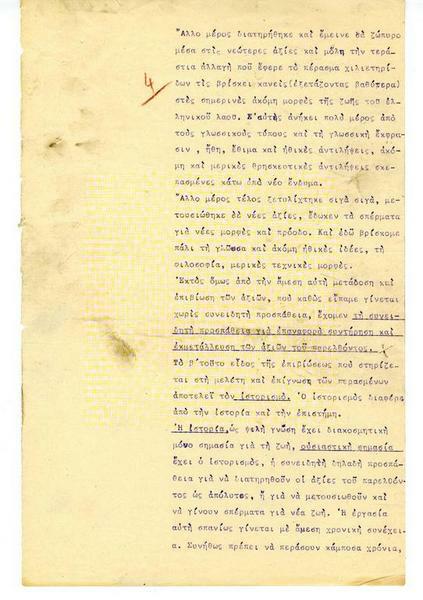 4
Ἄλλο μέρος διατηρήθηκε καὶ ἔμεινε δὰ ζώπυρο
μέσα στὶς νεώτερες ἀξίες καὶ μόλη τὴν τερά-
στια ἀλλαγὴ ποὺ ἔφερε τὸ πέρασμα χιλιετηρί-
δων τὶς βρίσκει κανεὶς(ἐξετάζοντας βαθύτερα)
στὲς σημερινὲς ἀκόμη μορφὲς τῆς ζωῆς τοῦ ἑλ-
ληνικοῦ λαοῦ. Σ'αὐτὲς ἀνήκει πολὺ μέρος ἀπὸ
τοὺς γλωσσικοὺς τύπους καὶ τὴ γλωσσικὴ ἔκφρα-
σιν , ἤθη, ἔθιμα καὶ ἠθικὲς ἀντιλήψεις, ἀκό-
μη καὶ μερικὲς θρησκευτικὲς ἀντιλήψεις σκε-
πασμένες κάτω ἀπὸ νέο ἔνδυμα.
Ἄλλο μέρος τέλος ξετυλίχτηκε σιγὰ σιγὰ, με-
τουσιώθηκε δὲ νέες ἀξίες, ἔδωκεν τὰ σπέρματα
γιὰ νέες μορφὲς καὶ πρόοδο. Καὶ ἐδῶ βρίσκομε
πάλι τὴ γλῶσσα καὶ ἀκόμη ἠθικὲς ἰδέες, τὴ
φιλοσοφία, μερικὲς τεχνικὲς μορφές.
Ἐκτὸς ὅμως ἀπὸ τὴν ἄμεση αὐτὴ μετάδοση καὶ
ἐπιβίωση τῶν ἀξιῶν, ποὺ καθὼς εἴπαμε γίνεται
χωρὶς συνειδητὴ προσπάθεια, ἔχομεν τὴ συνει-
δητὴ προσπάθεια γιὰ ἐπαναφορὰ συντήρηση καὶ
ἐκμετάλλευση τῶν ἀξιῶν τοῦ παρελθόντος.
Τὸ β΄τοῦτο εἶδος τῆς ἐπιβιώσεως ποὺ στηρίζε-
ται στὴ μελέτη καὶ ἐπίγνωση τῶν περασμένων
ἀποτελεῖ τὸν ἱστορισμὸ. Ὁ ἱστορισμὸς διαφέρει
ἀπὸ τὴν ἱστορία καὶ τὴν ἐπιστήμη.
Ἡ ἱστορία,ὡς ψιλὴ γνώση ἔχει διακοσμητικὴ
μόνο σημασία γιὰ τὴ ζωὴ, οὐσιαστικὴ σημασία
ἔχει ὁ ἱστορισμὸς, ἡ συνειδητὴ δηλαδὴ προσπά-
θεια γιὰ νὰ διατηρηθοῦν οἱ ἀξίες τοῦ παρελθόν-
τος ὡς ἀπόλυτες, ἢ γιὰ νὰ μετουσιωθοῦν καὶ
νὰ γίνουν σπέρματα γιὰ νέα ζωὴ. Ἡ ἐργασία
αὐτὴ σπανίως γίνεται μὲ ἄμεση χρονικὴ συνέχει-
α. Συνήθως πρέπει νὰ περάσουν κάμποσα χρόνια,